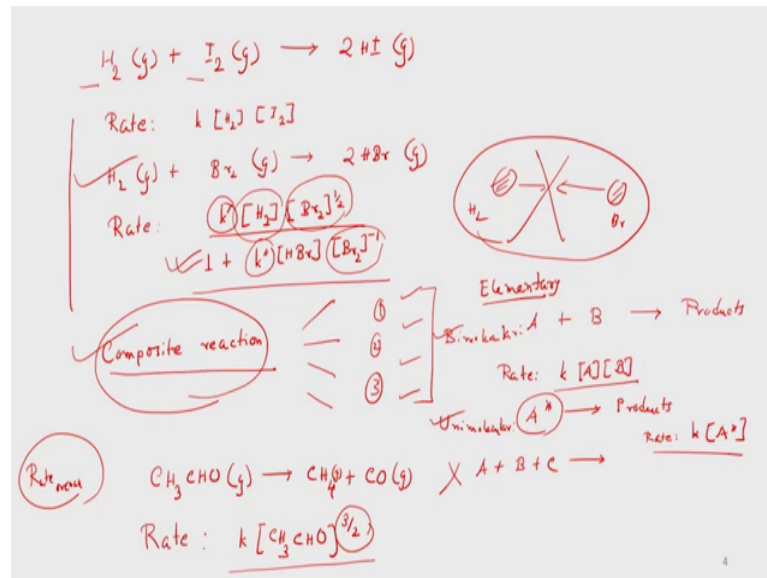 H₂ (g) + I₂ (g) → 2 HI (g)
Rate: k [H₂] [I₂]
H₂ (g) + Br₂ (g) → 2 HBr (g)
Rate: k' [H₂] [Br₂]^½
1 + k" [HBr] [Br₂]⁻¹
H₂ Br
Composite reaction
①
②
③
Elementary
Bimolecular: A + B → Products
Rate: k [A] [B]
Unimolecular: A* → Products
Rate: k [A*]
X A + B + C →
Rate
CH₃CHO (g) → CH₄(g) + CO (g)
Rate : k [CH₃CHO]^3/2
4